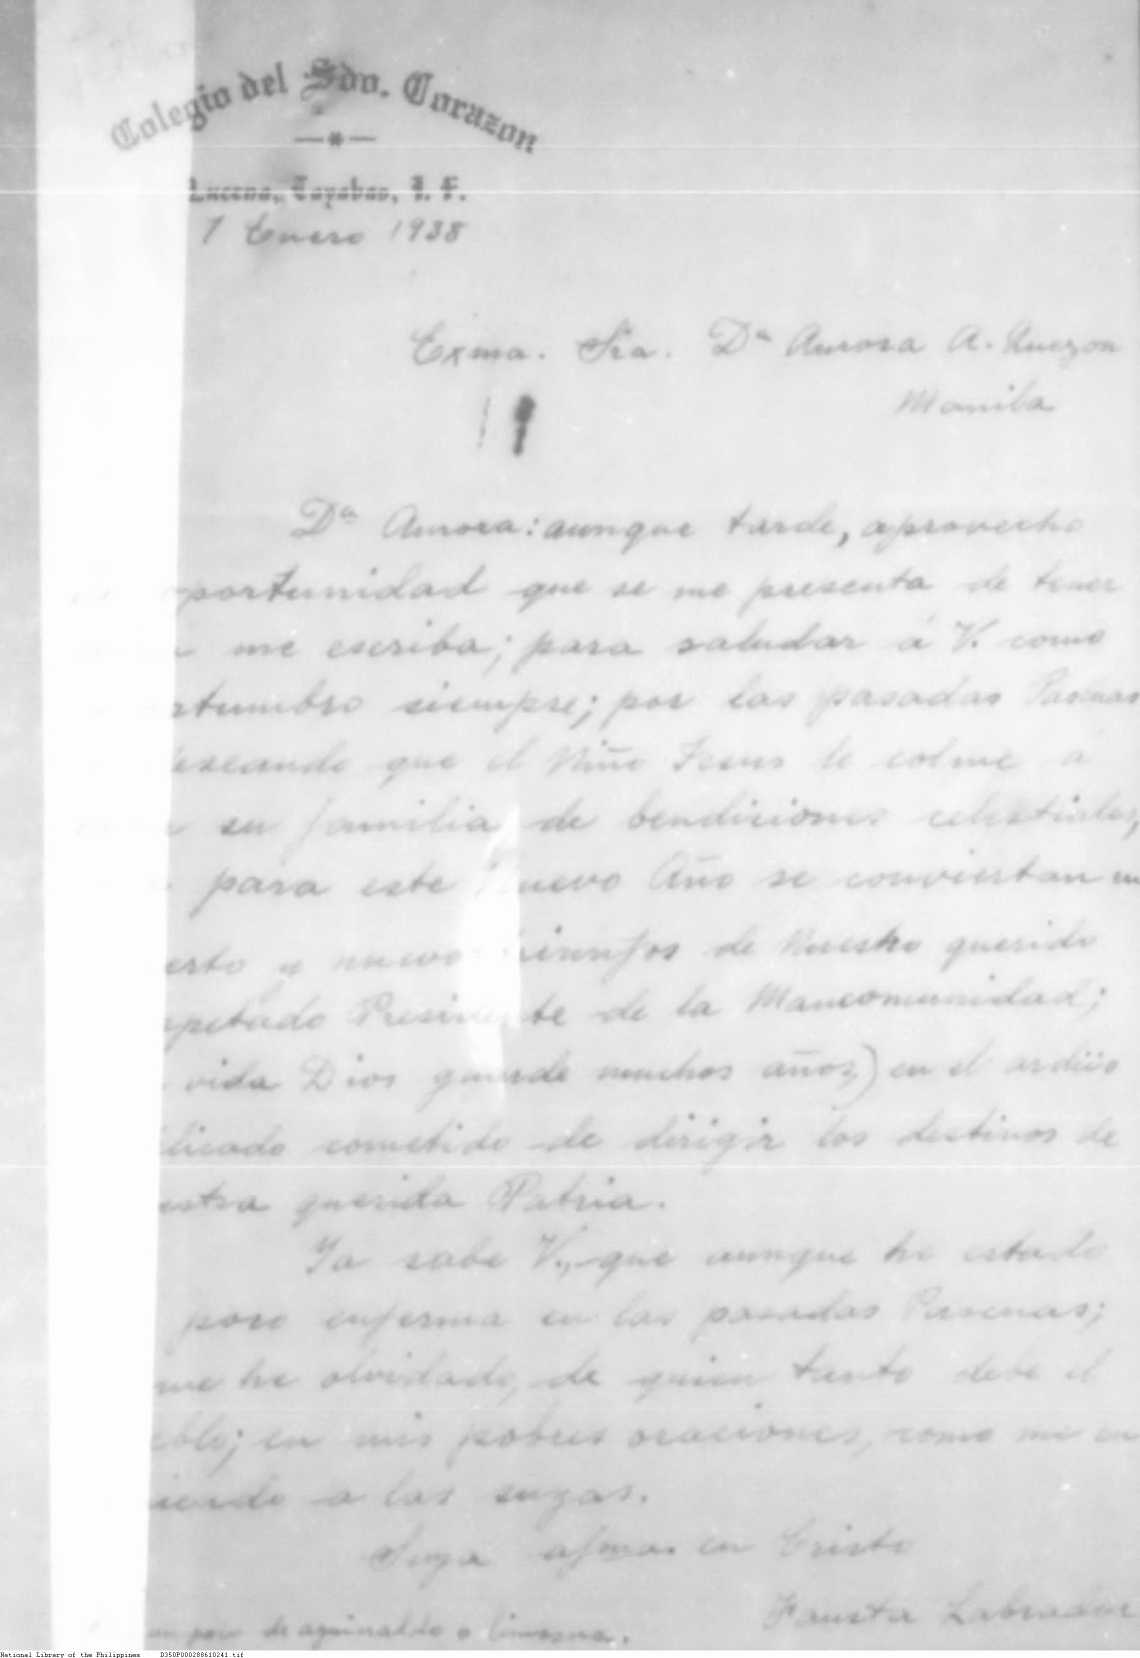 Colegio del Sdo. Corazon
Lucena, Tayabas, I. F.
7 Enero 1938
Exma. Sra. Dª Aurora A. Quezon
Manila
Dª Aurora: aunque tarde, aprovecho
oportunidad que se me presenta de tener
me escriba; para saludar á V. como
stumbro siempre; por las pasadas Pascuas
deseando que el Niño Jesus le colme a
su familia de bendiciones celestiales,
para este nuevo Año se conviertan en
erto y nuevo triunfos de Nuestro querido
spetado Presidente de la Mancomunidad;
vida Dios guarde muchos años) en el ardúo
licado cometido de dirigir los destinos de
estra querida Patria.
Ya sabe V., que aunque he estado
poco enferma en las pasadas Pascuas;
me he olvidado, de quien tanto debe el
eblo; en mis pobres oraciones, como me en
iendo a las suyas.
Suya afma. en Cristo
Fausta Labrador
un poco de aguinaldo o limosna.
National Library of the Philippines D350P000288610241.tif